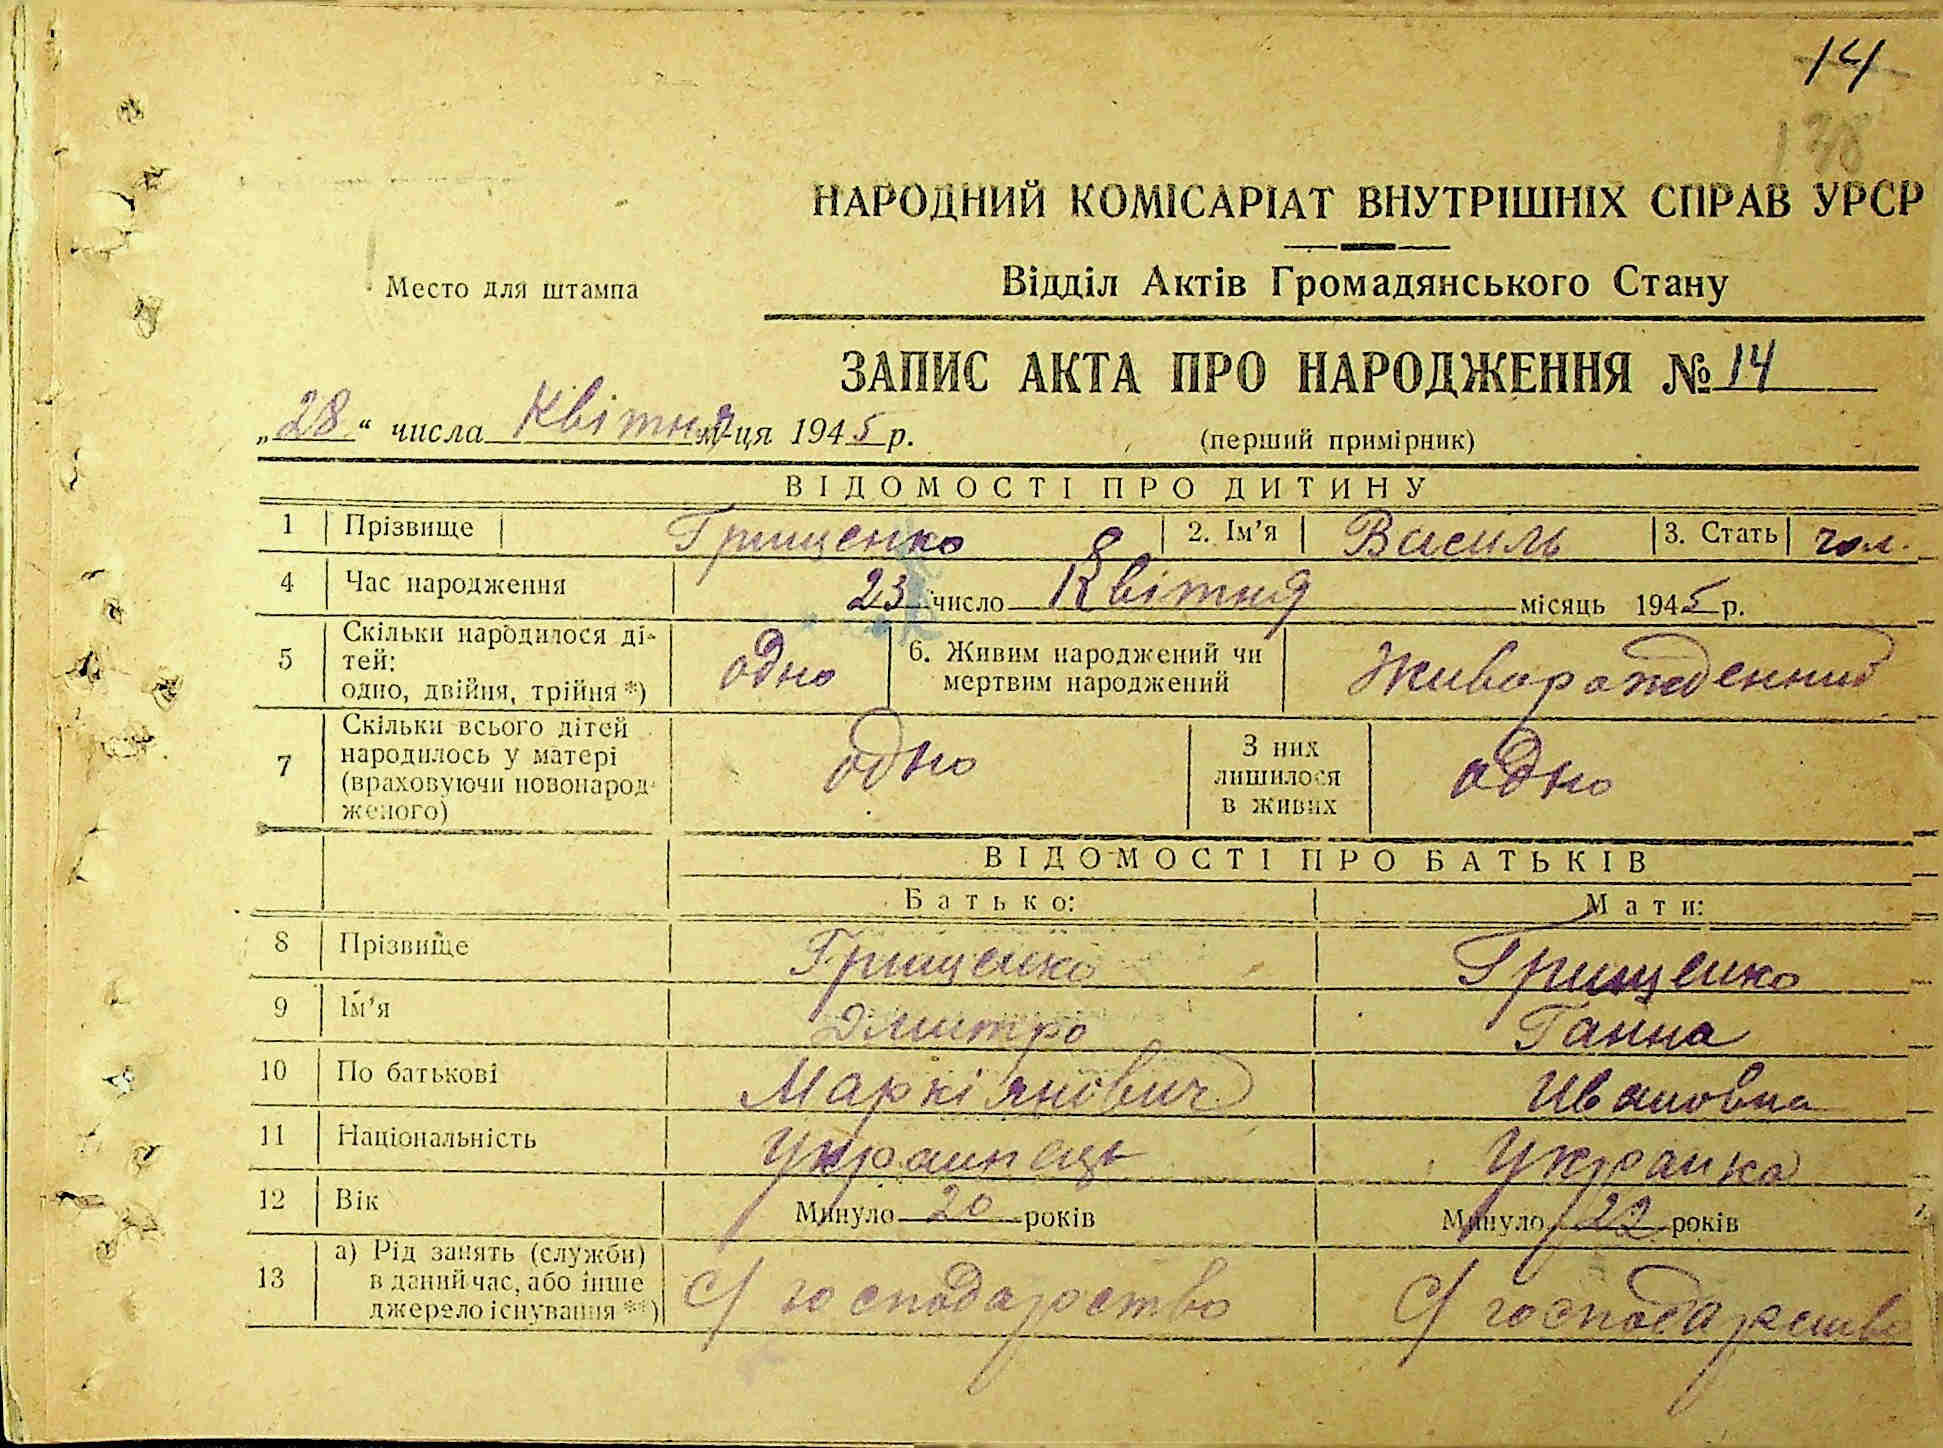 14
138
НАРОДНИЙ КОМІСАРІАТ ВНУТРІШНІХ СПРАВ УРСР
Место для штампа
Відділ Актів Громадянського Стану
ЗАПИС АКТА ПРО НАРОДЖЕННЯ № 14
„28“ числа Квітня м-ця 1945 р.
(перший примірник)
ВІДОМОСТІ ПРО ДИТИНУ
1 Прізвище Грищенко 2. Ім’я Василь 3. Стать чол.
4 Час народження 23 число Квітня місяць 1945 р.
5 Скільки народилося ді-
тей:
одно, двійня, трійня *) одно 6. Живим народжений чи
мертвим народжений Живорожденний
7 Скільки всього дітей
народилось у матері
(враховуючи новонарод-
женого) одно З них
лишилося
в живих одно
ВІДОМОСТІ ПРО БАТЬКІВ
Батько: Мати:
8 Прізвище Грищенко Грищенко
9 Ім’я Дмитро Ганна
10 По батькові Маркіянович Ивановна
11 Національність Украинець Украинка
12 Вік Минуло 20 років Минуло 22 років
13 а) Рід занять (служби)
в даний час, або інше
джерело існування **) С/господарство С/господарство